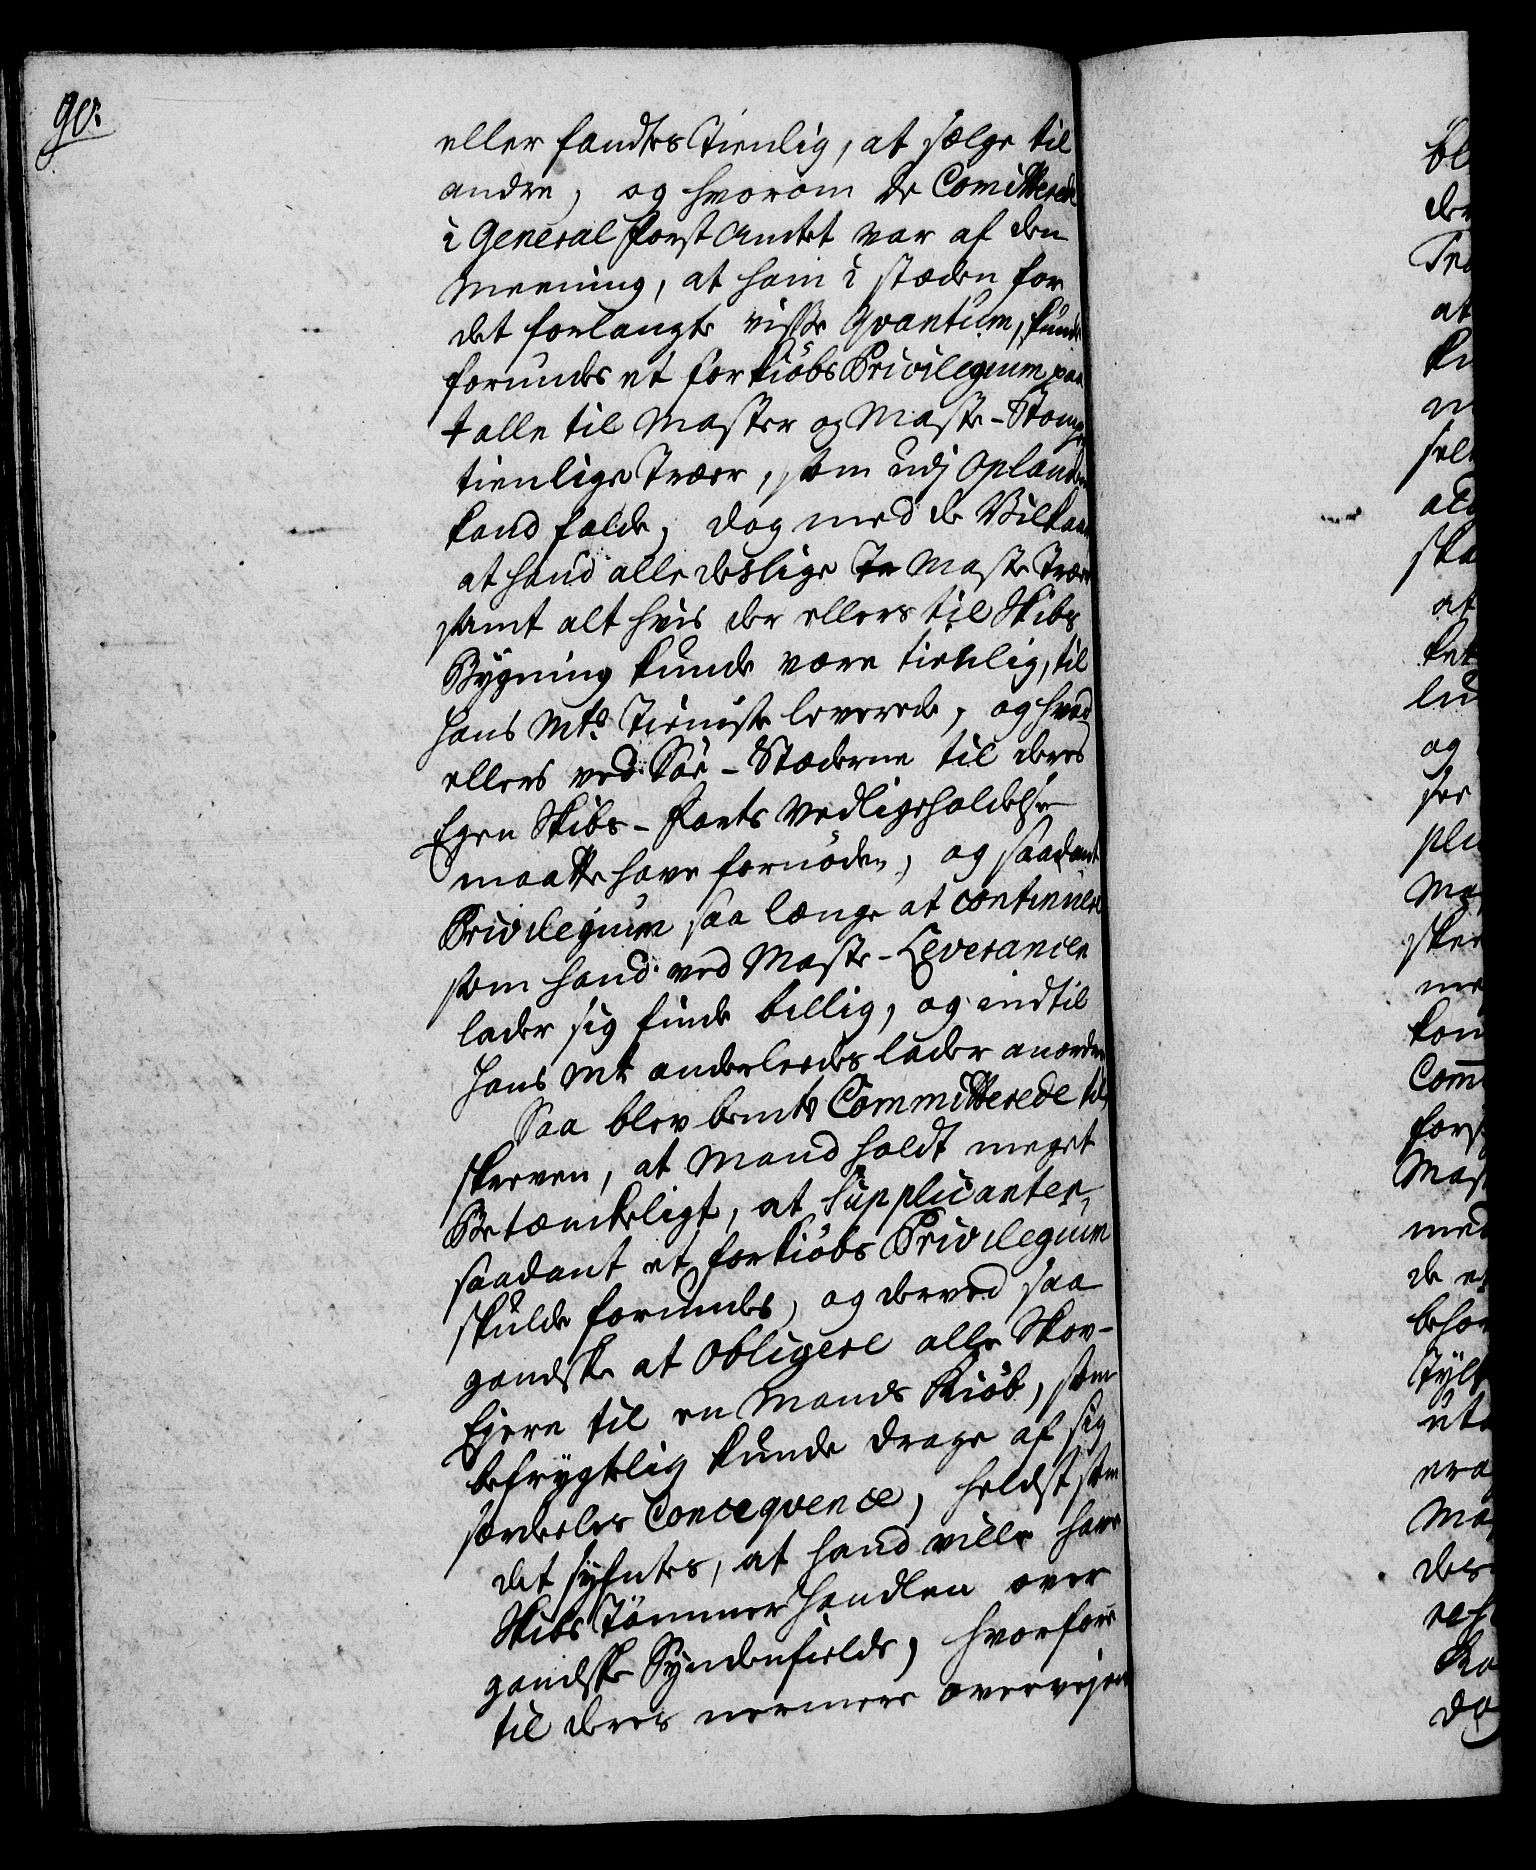 90.
eller fandtes tienlig, at sælge til
andre, og hvorom de Comitterede
i General forst Amtet var af den
Meening, at ham i stæden for
det forlangte visse Qvantum, kunde
forundes et forkiøbs Privilegium paa
alle til Master og Maste-Stomper
tienlige Træer, som udj Oplandene
kand falde, dog med de Vilkaar
at hand alle deslige Maste Træer
samt alt hvis der ellers til Skibs
Bygning kunde være tienlig, til
Hans Mts. Tieniste leverede, og hvad
ellers ved Søe-Stæderne til deres
Egen Skibs-farts vedligeholdelse
maatte have fornøden, og saadant
Privilegium saa længe at continuere
som hand ved Maste-Leverancen
lader sig finde billig, og indtil
Hans Mt anderleedes lader anordne
Saa blev bemte Committerede til-
skreven, at Mand holdt meget
Betænkeligt, at Supplicanten,
saadant et forkiøbs Privilegium
skulde forundes, og derved saa
gandske at obligere alle Skov-
Ejere til en Mands Kiøb, som
befrygtelig kunde drage af sig
særdeeles Conceqvence, heldst som
det syntes, at hand ville have
Skibs Tømmer Handlen over
gandske Syndenfields, hvorfore
til deres nermere overvejen